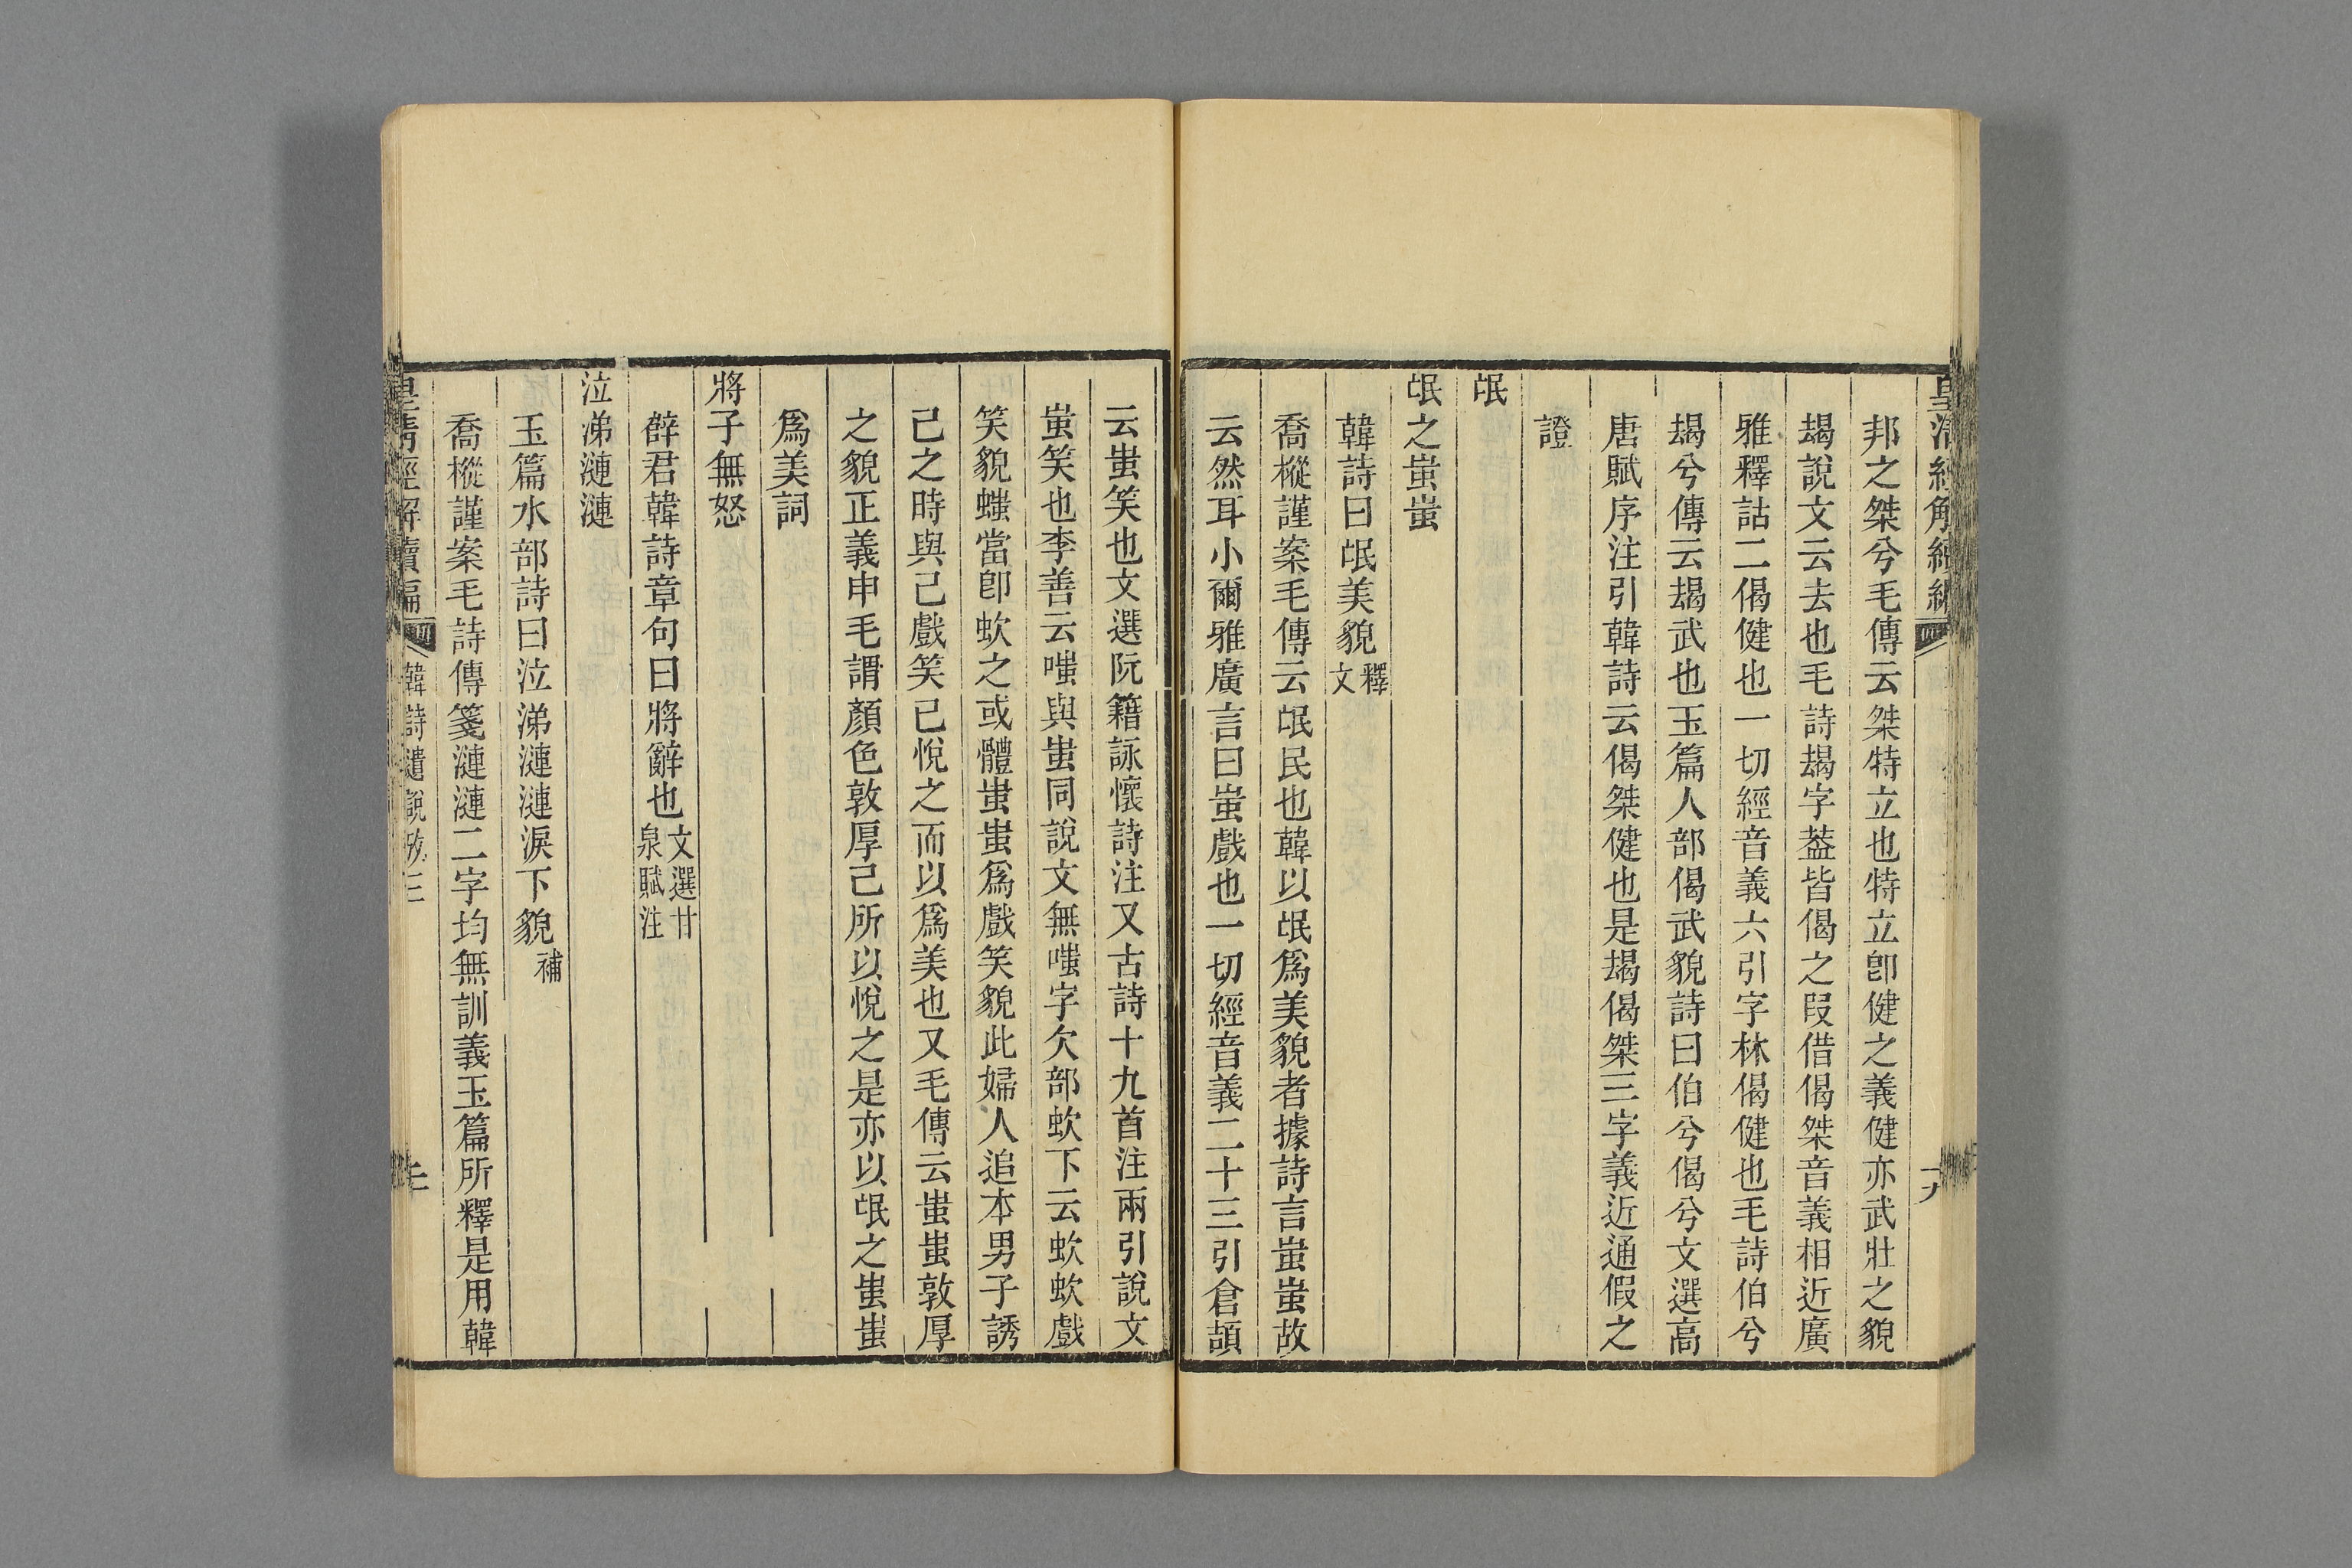 邦之桀兮毛傳云桀特立也特立卽健之義健亦武壯之貌
朅說文云去也毛詩朅字葢皆偈之叚借偈桀音義相近廣
雅釋詁二偈健也一切經音義六引字林偈健也毛詩伯兮
朅兮傳云朅武也玉篇人部偈武貌詩曰伯兮偈兮文選高
唐賦序注引韓詩云偈桀健也是朅偈桀三字義近通假之
證
氓
氓之蚩蚩
韓詩曰氓美貌釋文
喬樅謹案毛傳云氓民也韓以氓爲美貌者據詩言蚩蚩故
云然耳小爾雅廣言曰蚩戲也一切經音義二十三引倉頡
云蚩笑也文選阮籍詠懷詩注又古詩十九首注兩引說文
蚩笑也李善云嗤與蚩同說文無嗤字欠部㰞下云㰞㰞戲
笑貌蚩當卽㰞之或體蚩蚩爲戲笑貌此婦人追本男子誘
己之時與己戲笑已悅之而以爲美也又毛傳云蚩蚩敦厚
之貌正義申毛謂顏色敦厚己所以悅之是亦以氓之蚩蚩
爲美詞
將子無怒
薛君韓詩章句曰將辭也文選甘泉賦注
泣涕漣漣
玉篇水部詩曰泣涕漣漣淚下貌補
喬樅謹案毛詩傳箋漣漣二字均無訓義玉篇所釋是用韓
皇清經解續編 韓詩遺說攷三